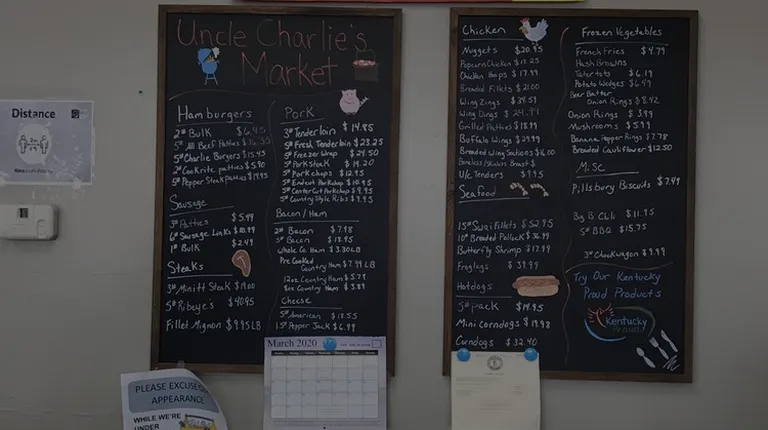 Distance
Uncle Charlie's
Market
Hamburgers
2# Bulk $6.45
5# All Beef Patties
5# Charlie Burgers $15.45
2# Cookrite patties $5.90
5# Pepper Steak patties $19.95
Sausage
3# Patties $5.99
6# Sausage Links $10.99
1# Bulk $2.49
Steaks
3# Minitt Steak $19.00
5# Ribeye's $40.95
Fillet Mignon $9.95 LB
Pork
3# Tenderloin $14.85
5# Fresh Tenderloin $23.25
5# Freezer Wrap $24.50
5# Pork Steak $14.20
5# Pork chops $12.95
5# Endcut Porkchop $10.95
5# Center Cut Porkchop $9.95
5# Country Style Ribs $9.95
Bacon/Ham
2# Bacon $7.98
5# Bacon $18.95
Whole Co. Ham $3.30 LB
Pre Cooked
Country Ham $7.99 LB
12oz Country Ham $5.79
8oz Country Ham $3.89
Cheese
5# American $18.55
1.5# Pepper Jack $6.99
Chicken
Nuggets $20.95
Popcorn Chicken $18.25
Chicken Bops $17.99
Breaded Fillets $21.00
Wing Zings $34.59
Wing Dings $24.99
Grilled Patties $18.99
Buffalo Wings $29.99
Breaded Wing Sections $16.00
Boneless/Skinless Breast $
U/C Tenders $19.95
Seafood
15# Swai Fillets $52.95
10# Breaded Pollock $36.99
Butterfly Shrimp $17.99
Froglegs $39.99
Hotdogs
5# pack $14.95
Mini Corndogs $19.98
Corndogs $32.40
Frozen Vegetables
French Fries $4.79
Hash Browns
Tatertots $6.19
Potato Wedges $6.49
Beer Batter
Onion Rings $8.42
Onion Rings $3.99
Mushrooms $5.99
Banana Pepper Rings $7.78
Breaded Cauliflower $12.50
Misc
Pillsbury Biscuits $7.49
Big B Chili $11.95
5# BBQ $15.75
3# Chuckwagon $9.99
Try Our Kentucky
Proud Products
Kentucky
Proud
March 2020
PLEASE EXCUSE OUR
APPEARANCE
WHILE WE'RE
UNDER